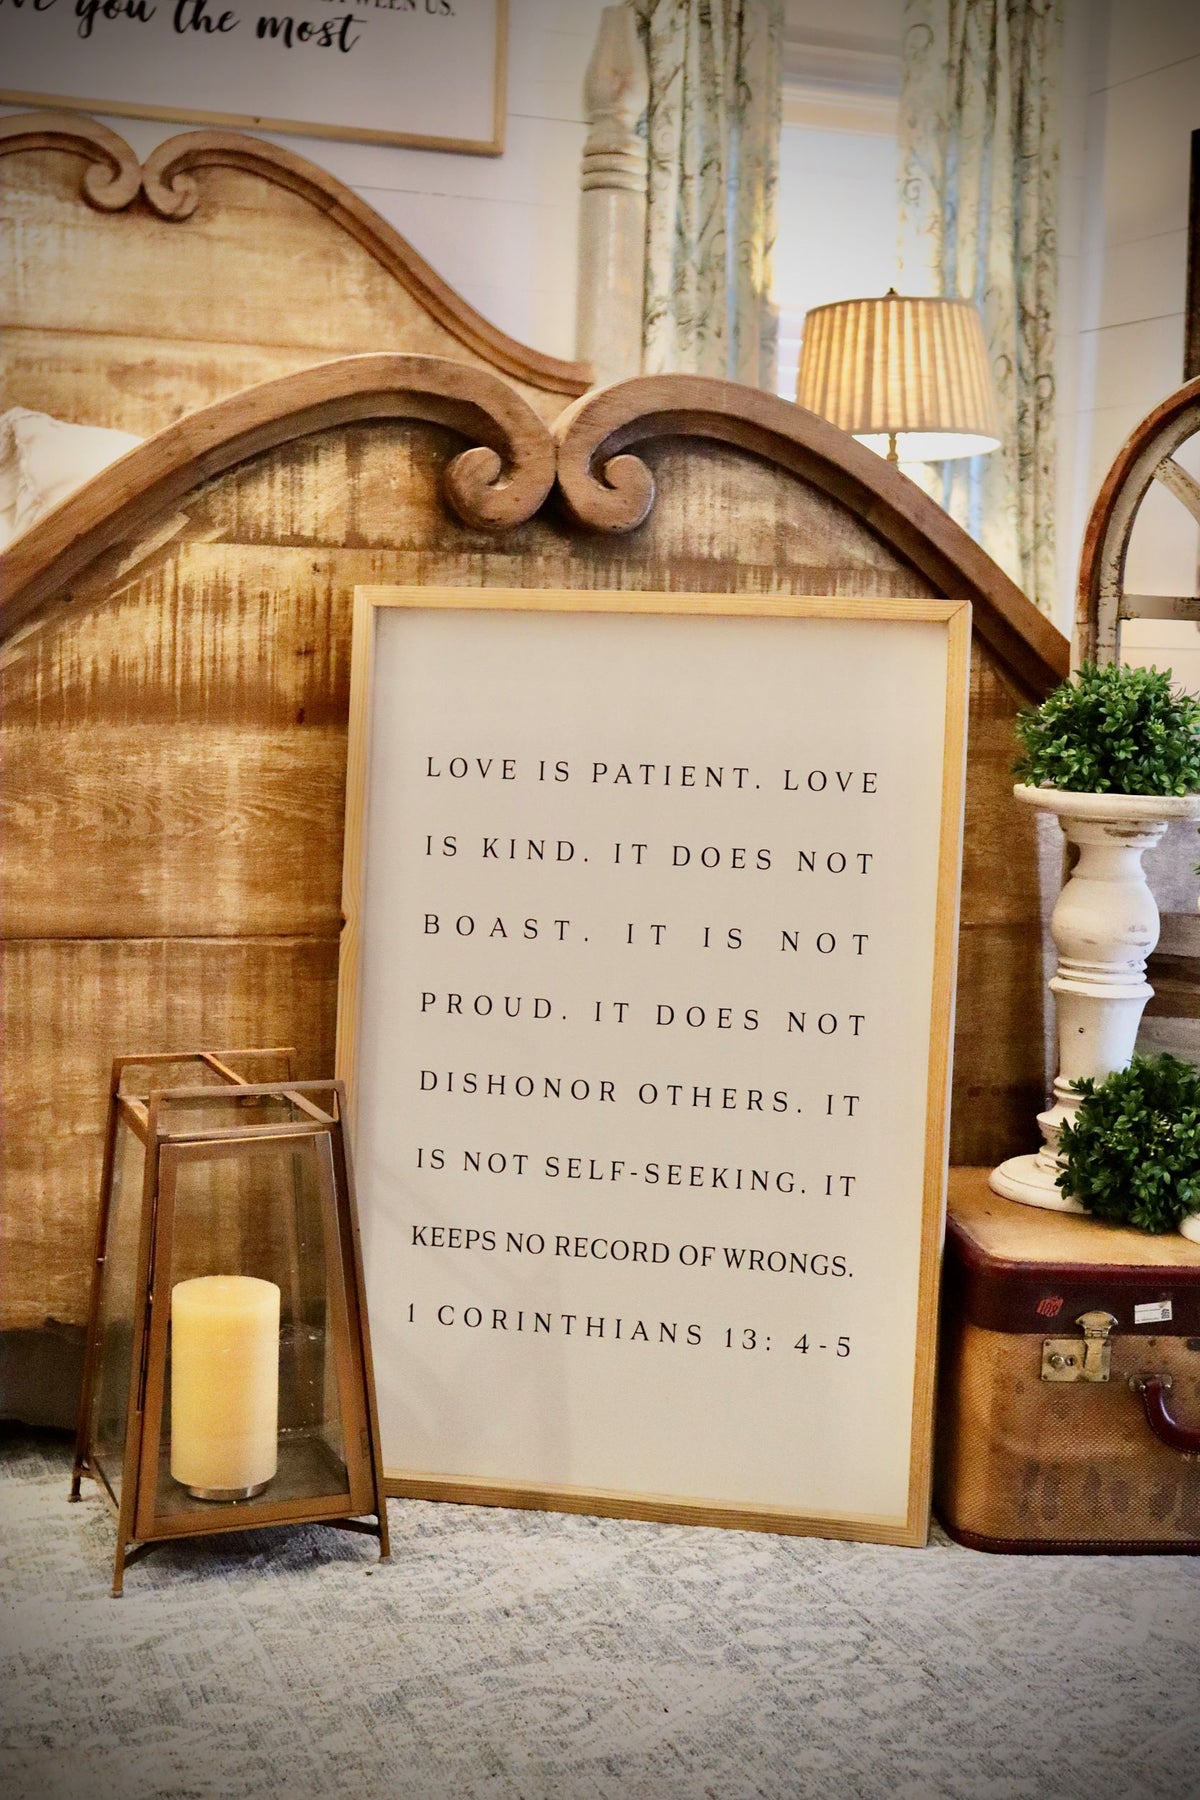 you the most
US.
LOVE IS PATIENT. LOVE
IS KIND. IT DOES NOT
BOAST. IT IS NOT
PROUD. IT DOES NOT
DISHONOR OTHERS. IT
IS NOT SELF-SEEKING. IT
KEEPS NO RECORD OF WRONGS.
1 CORINTHIANS 13: 4-5